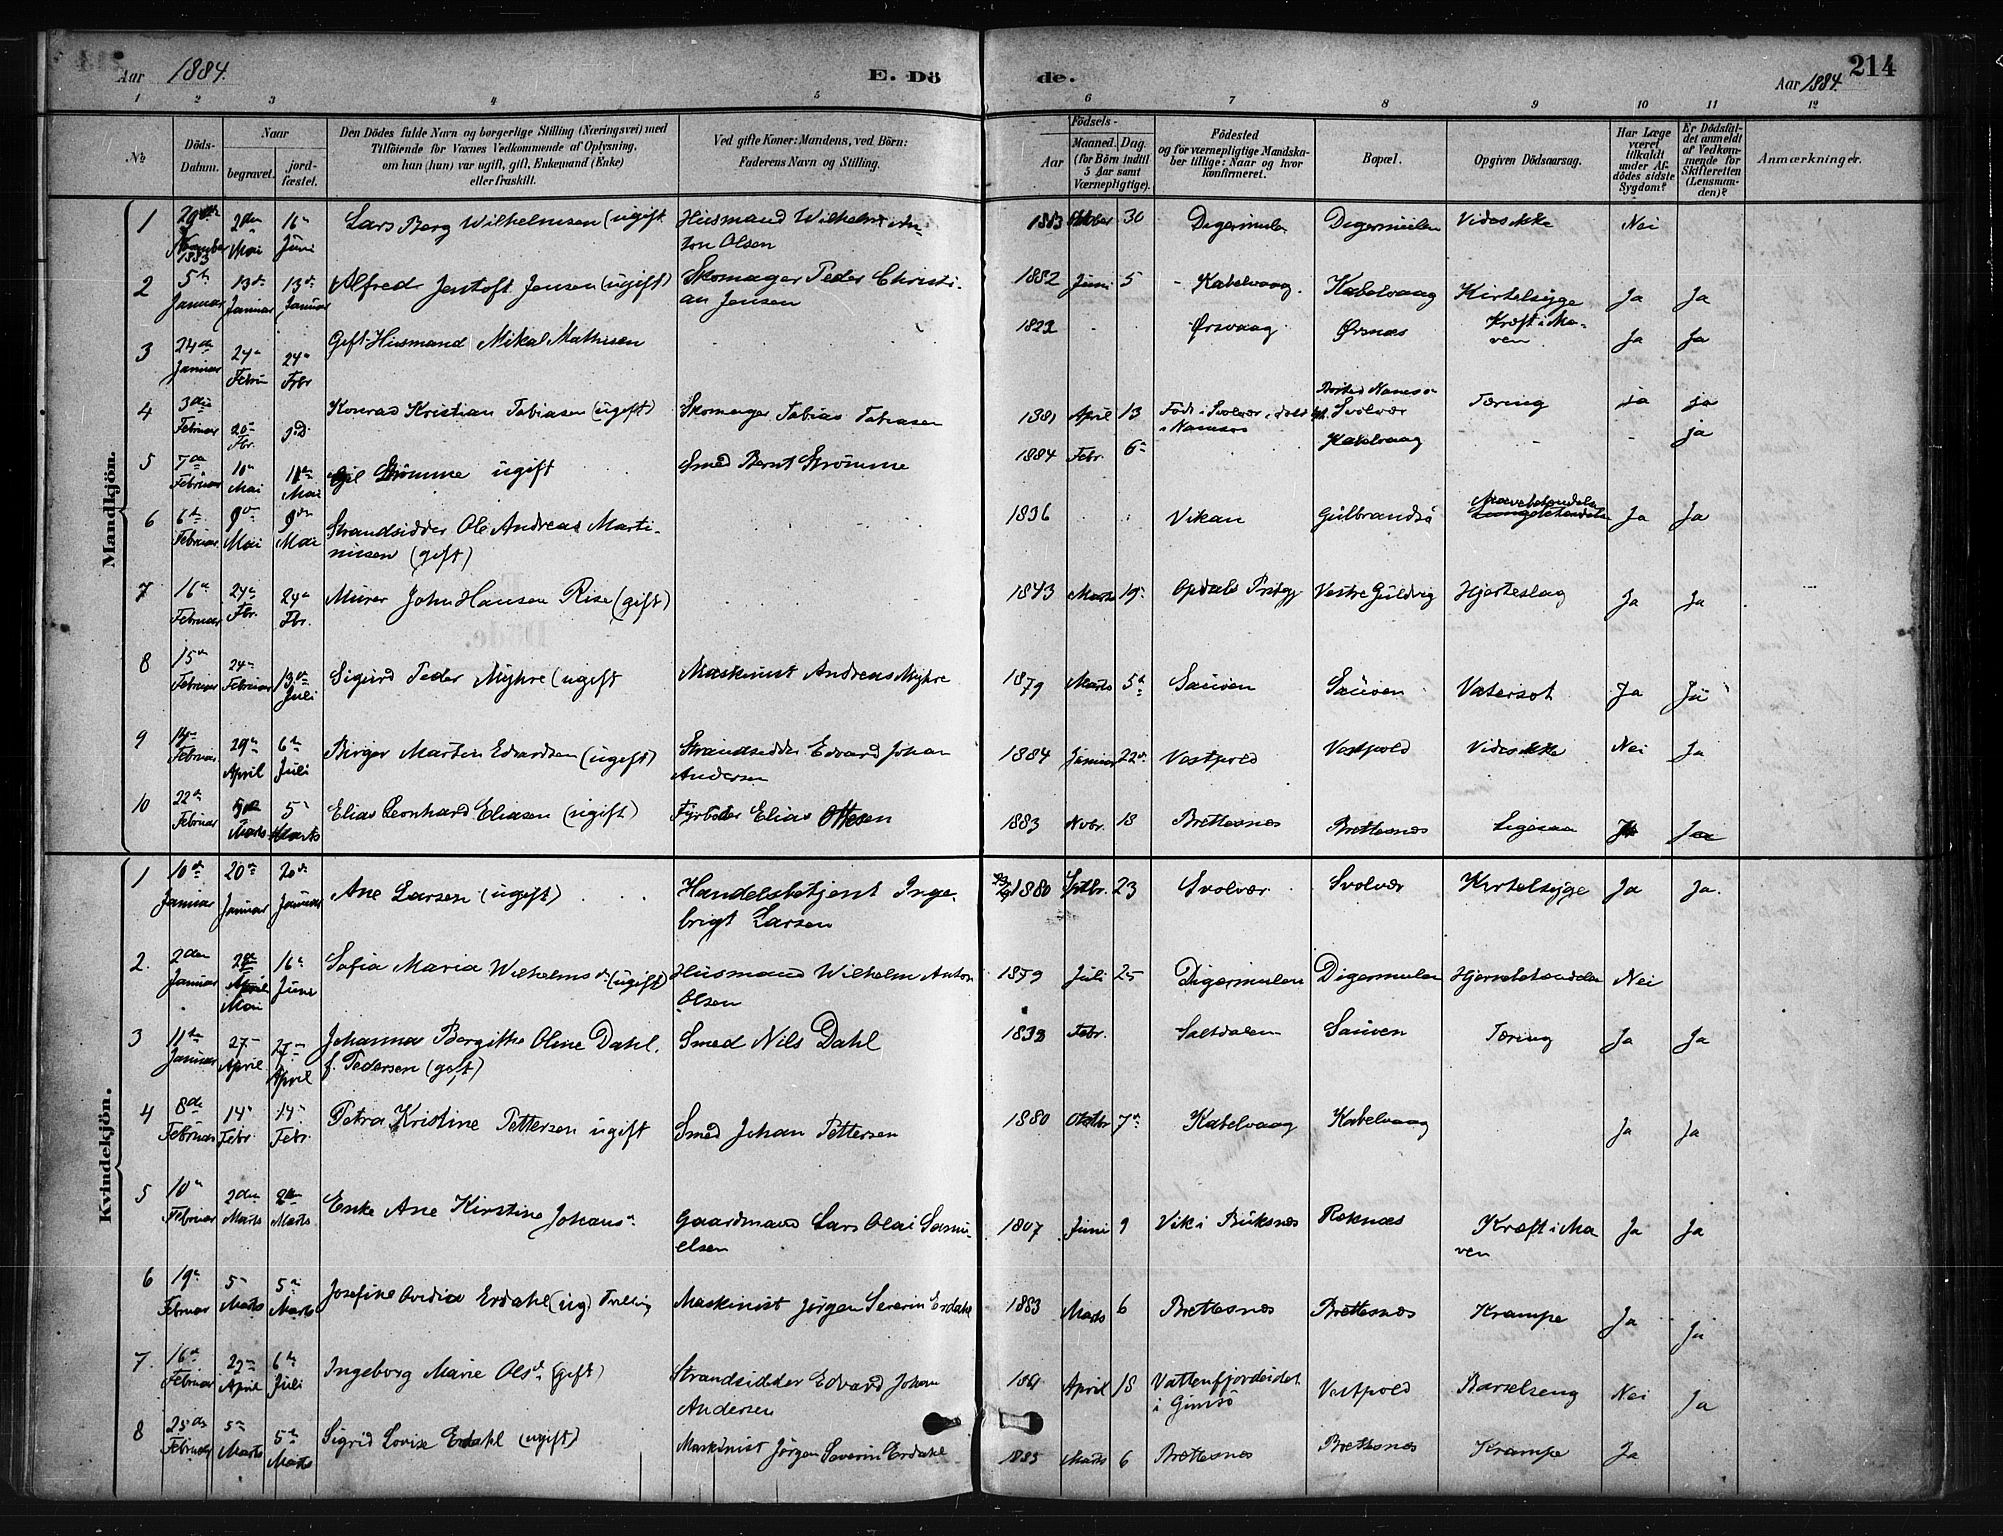 Aar 1884. E. Dö de. Aar 1884. 214
1 2 3 4 5 6 7 8 9 10 11 12
№
Döds-Datum.
Naar
begravet.
jord-fæstet.
Den Dödes fulde Navn og borgerlige Stilling (Næringsvei) med
Tilföiende for Voxnes Vedkommende af Oplysning,
om han (hun) var ugift, gift, Enkemand (Enke)
eller fraskilt.
Ved gifte Koner: Mandens, ved Börn:
Faderens Navn og Stilling.
Födsels-
Aar
Maaned. (for Börn indtil 5 Aar samt Værnepligtige).
Dag.
Födested
og for værnepligtige Mandska-
ber tillige: Naar og hvor
konfirmeret.
Bopæl.
Opgiven Dödsaarsag.
Har Læge
været
tilkaldt
under Af-
dödes sidste
Sygdom?
Er Dödsfal-
det anmeldt
af Vedkom-
mende for
Skifteretten
(Lensman-
den)?
Anmærkninger.
Mandkjön.
1 29de November 1883 2den Mai 16 Juni Lars Berg Wilhelmsen (ugift Husmand Wilhelm An-
ton Olsen 1883 Oktober 30 Digermulen Digermulen Vides ikke Nei
2 5te Januar 13de Januar 13de Januar Alfred Jentoft Jensen (ugift) Skomager Peder Christi-
an Jensen 1882 Juni 5 Kabelvaag Kabelvaag Kirtelsyge Ja Ja
3 24de Januar 24 Februar 24 Febr Gift Husmand Mikal Mathisen 1822 Ørsvaag Ørsnæs Kræft i Ma-
ven Ja Ja
4 3die Februar 20 Fbr. Konrad Kristian Tobiasen (ugift) Skomager Tobias Tobiasen 1881 April 13 Född i Svolvær, død
i Namsos Bosted Namsos
Svolvær Tæring ja ja
5 7de Februar 11 Mai 11 Mai Strømme ugift Smed Bernt Strømme 1884 Febr. 6 Kabelvaag ja
6 6te Februar 9de Mai 9de Mai Strandsidder Ole Andreas Marti-
niusen (gift) 1836 Vikan Gulbrandsö Ja Ja
7 16 Februar 24 Fbr. 24 Fbr. Murer John Hansen Rise (gift) 1843 Marts 19 Opdals Prstgj Vestre Guldvig Hjerteslag Ja Ja
8 15 Februar 24 Februar 13 Juli Sigurd Peder Myhre (ugift Maskinist Andreas Myhre 1879 Marts 5 Sauöen Sauöen Vatersot Ja Ja
9 Februar 29 April 6te Juli Birger Martin Edvardsen (ugift) Strandsidder Edvard Johan
Andersen 1884 Januar 22 Vestpold Vestpold Vides ikke Nei Ja
10 22 Februar 5 Marts 5 Marts Elias Leonhard Eliasen (ugift) Fyrböder Elias Ottesen 1883 Nvbr. 18 Brettesnes Brettesnes Ligesaa Ja
Kvindekjön.
1 10de Januar 20 Januar 20 Januar Ane Larsen (ugift) Handelsbetjent Inge-
brigt Larsen 1880 Septbr. 23 Svolvær Svolvær Kirtelsyge Ja Ja.
2. 2den Januar Mai 16 June Sofia Maria Wilhelmsd. (ugift) Husmand Wilhelm Anton
Olsen 1879 Juli 25 Digermulen Digermulen Hjernebetændelse Nei
3 11te Januar 27 April 27 April Johanna Bergitte Oline Dahl.
f. Pedersen (gift) Smed Nils Dahl 1832 Febr. Saltdalen Sauöen Tæring Ja Ja
4 8de Februar 14 Febr. 14 Febr. Petra Kristine Pettersen ugift Smed Johan Pettersen 1880 Oktbr 7 Kabelvaag Kabelvaag Ja Ja
5 10 Februar 2den Marts 2 Marts Enke Ane Kirstine Johans Gaardmand Lars Olai Samu-
elsen 1807 Juni 9 Vik i Buksnæs Reknæs Kræft i Ma
ven Ja Ja
6 19 Februar 5 Marts 5 Marts Josefine Ovidia Erdahl (ug) Tvilling Maskinist Jörgen Severin Erdahl 1883 Marts 6 Brettesnæs Brettesnæs Krampe Ja Ja
7. 16 Februar 29 April 6te Juli Ingeborg Marie Olsd. (gift) Strandsidder Edvard Johan
Andersen April 18 Vattenfjordeidet
i Gimsö Vestpold Barselseng Nei Ja
8 25de Februar 5 Marts 5te Marts Sigrid Lovise Erdahl (ugift) Maskinist Jörgen Severin Erdahl 1883 Marts 6 Brettesnæs Brettesnæs Krampe Ja